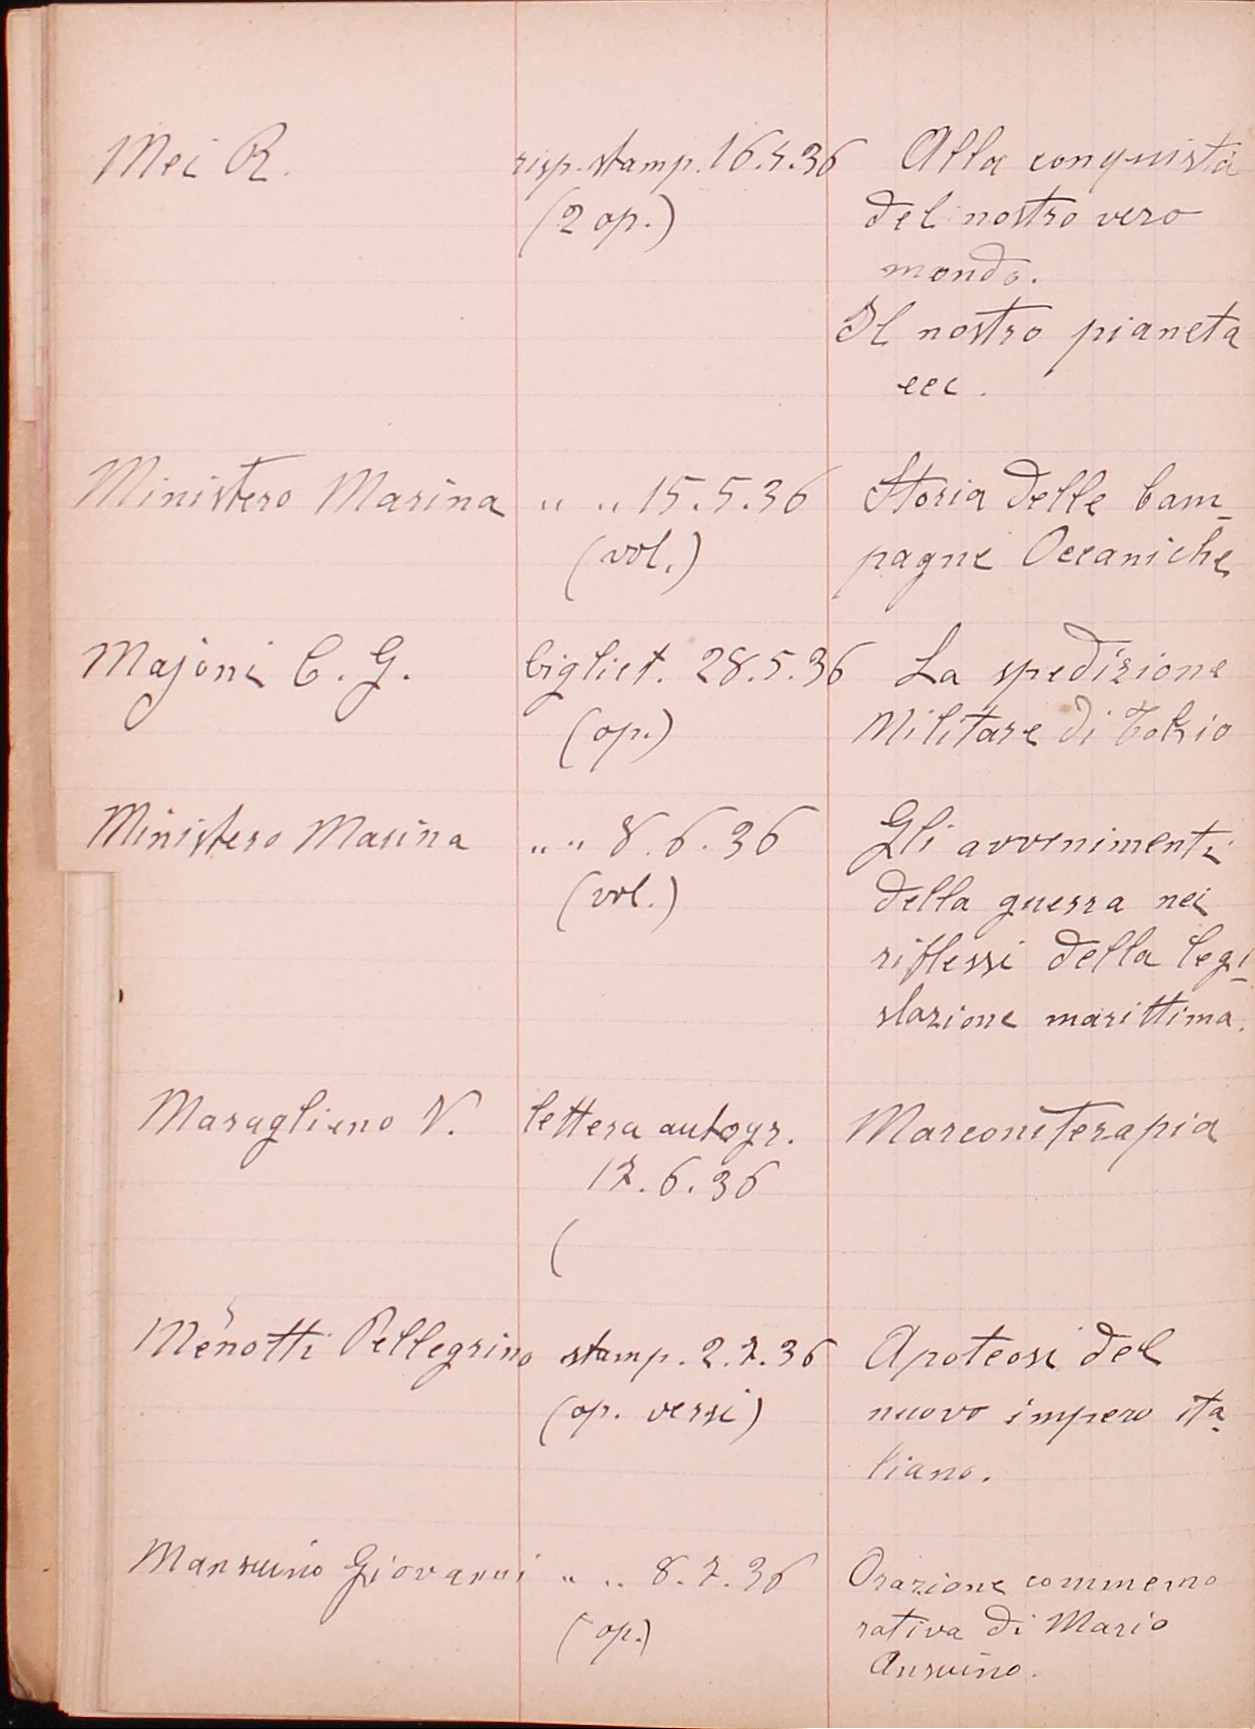 Mei R. risp. stamp. 16.4.36 Alla conquista
(2 op.) del nostro vero
mondo.
Il nostro pianeta
ecc.
Ministero Marina " " 15.5.36 Storia delle Cam-
(vol.) pagne Oceaniche
Majoni C. G. bigliet. 28.5.36 La spedizione
(op.) Militare di Tokio
Ministero Marina " " 8.6.36 Gli avvenimenti
(vol.) della guerra nei
riflessi della legi-
slazione marittima.
Maragliano V. lettera autogr. Marconiterapia
17.6.36
(
Menotti Pellegrino stamp. 2.7.36 Apoteosi del
(op. versi) nuovo impero ita-
liano.
Mansuino Giovanni " " 8.7.36 Orazione commemo
(op.) rativa di Mario
Ansuino.